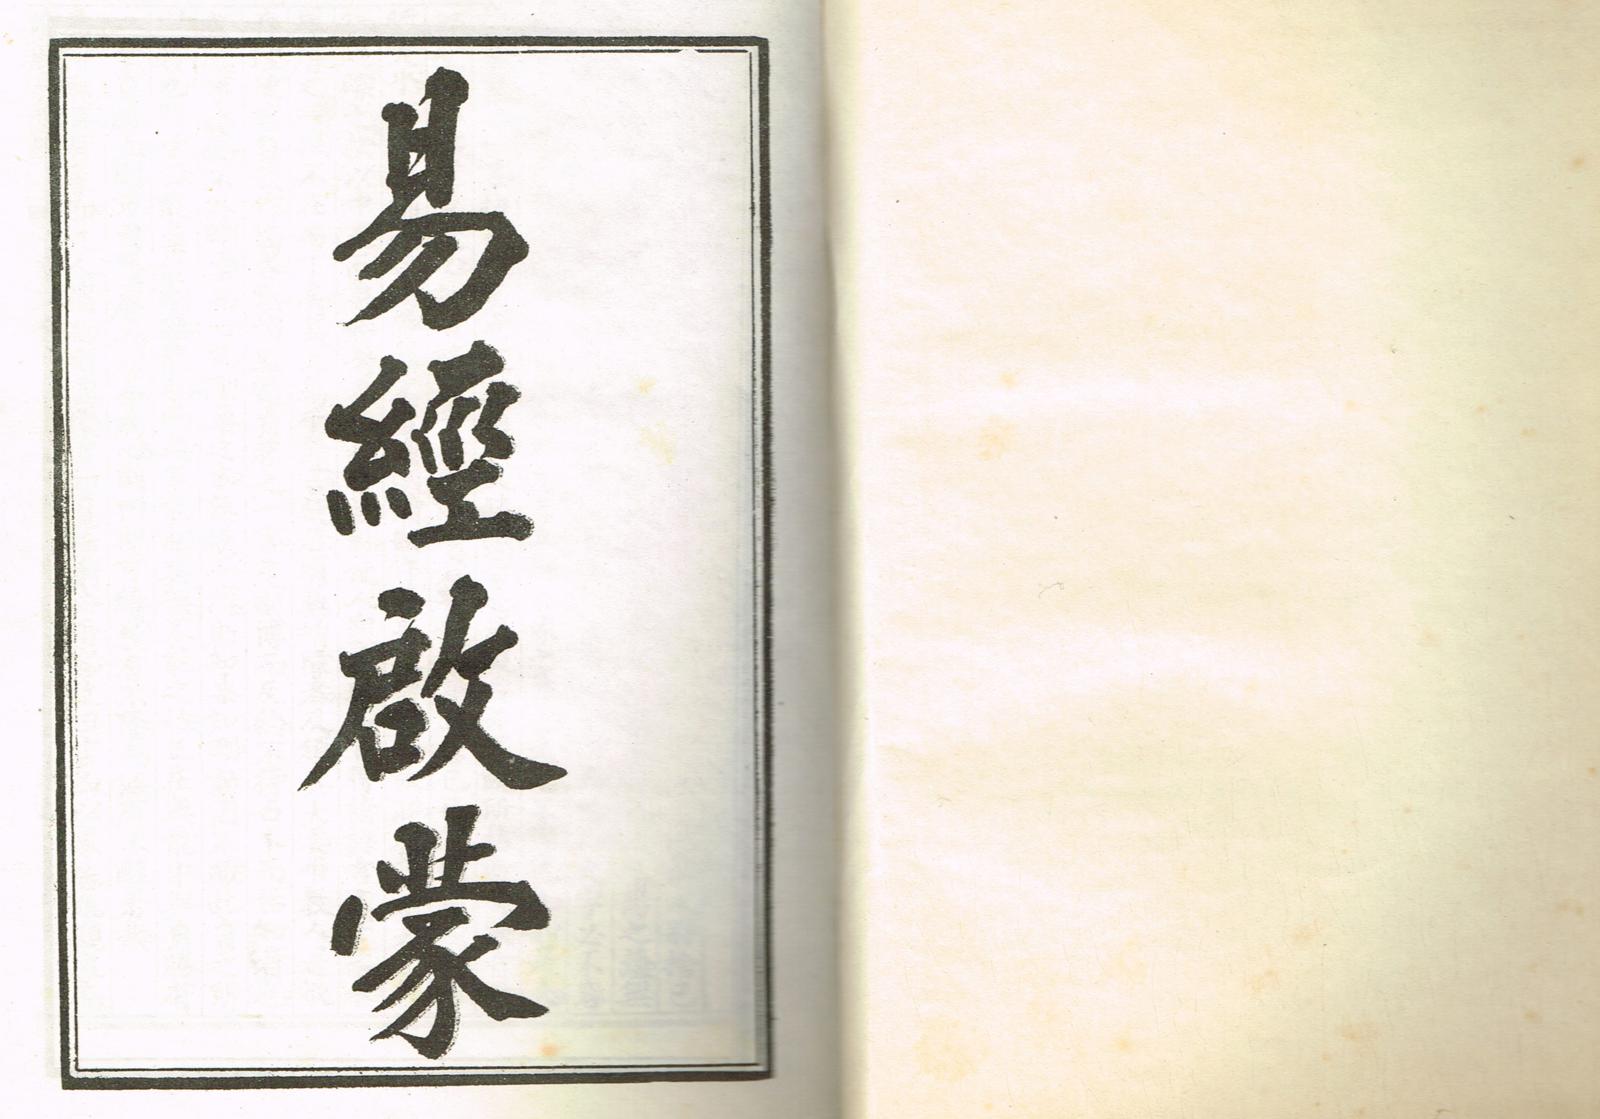 易經啟蒙